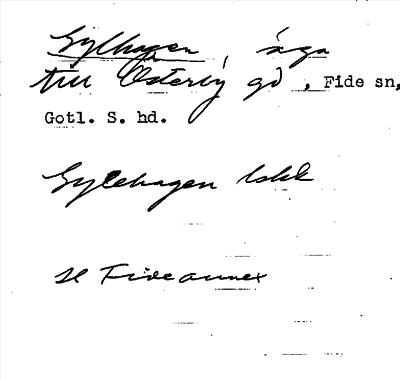 Gylhagen, äga
till Österby gd, Fide sn,
Gotl. S. hd.
Gylehagen
se Fide annex